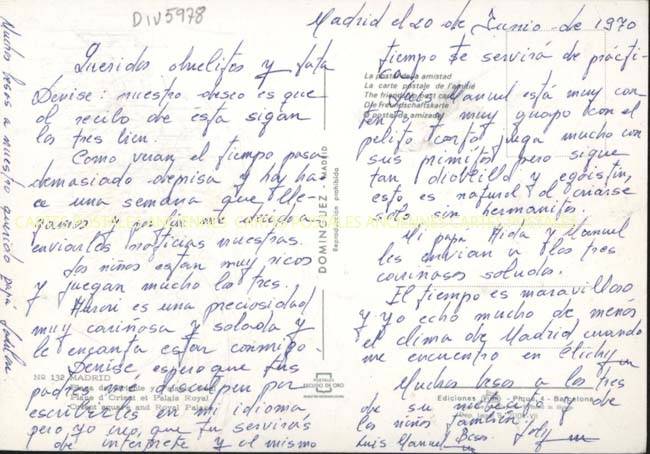 DIV5978
Madrid el 20 de Junio de 1970
Queridos abuelitos y tata
Denise: nuestro deseo es que
al recibo de ésta sigan
los tres bien.
Como vean el tiempo pasa
demasiado deprisa y hoy ha-
ce una semana que lle-
gamos y por fin me decido a
enviarles noticias nuestras.
Los niños estan muy ricos
y juegan mucho los tres.
es una preciosidad
muy cariñosa y salada y
le encanta estar conmigo
Denise, espero que tus
padres me disculpen por
escribirles en mi idioma
pero yo creo, que tu serviras
de intérprete y al mismo
tiempo te servirá de prácti-
ca.
Manuel está muy con-
tento y muy guapo con el
pelito corto juega mucho con
sus primitos pero sigue
tan diablillo y egoista,
esto es natural al criarse
solo sin hermanitos.
Mi papa Aida y Manuel
les envian a los tres
cariñosos saludos.
El tiempo es maravilloso
y yo echo mucho de menos
el clima de Madrid, cuando
me encuentro en Clichy
Muchos besos a los tres
de su y de
los niños tambien.
Luis Manuel Besos.
Muchos besos a nuestro querido papa
La postal de la amistad
La carte postale de l'amitié
The friendship post card
Die Freundschaftskarte
O postal da amizade
DOMINGUEZ - MADRID
Reproducción prohibida
Nº 132 MADRID
Plaza de Oriente y Palacio Real
Place d'Orient et Palais Royal
Orient square and Royal Palace
POSTALES
ESCUDO DE ORO
Ediciones Piqué, 4 - Barcelona
CARTES POSTALES ANCIENNES CARTES POSTALES ANCIENNES CARTES POSTALES